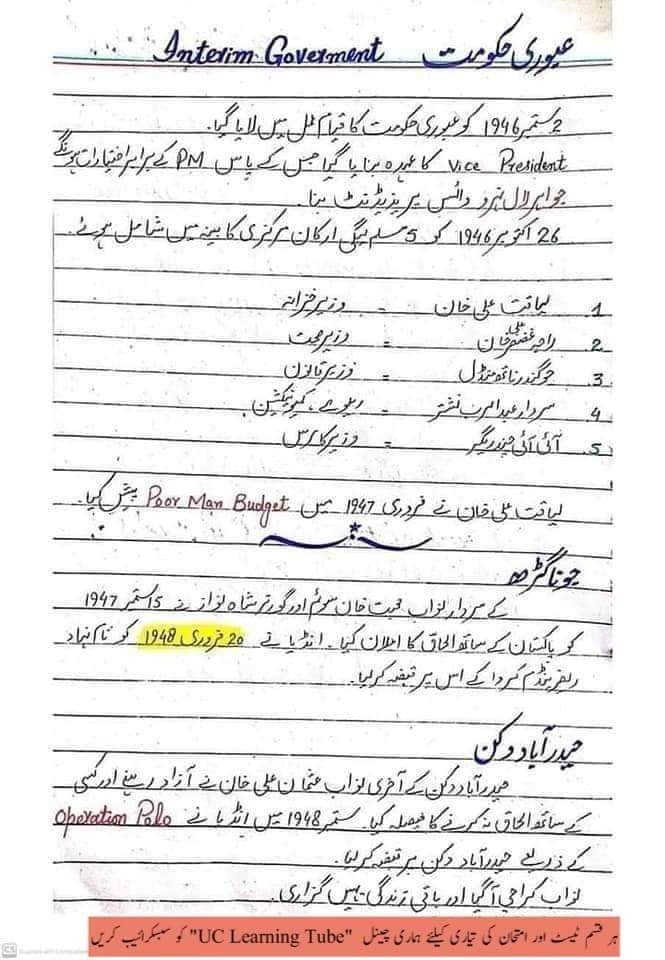 عبوری حکومت Interim Goverment
2 ستمبر 1946 کو عبوری حکومت کا قیام عمل میں لایا گیا۔
Vice President کا عہدہ بنایا گیا جس کے پاس PM کے برابر اختیارات ہونگے
جواہر لال نہرو وائس پریذیڈنٹ بنا۔
26 اکتوبر 1946 کو 5 مسلم لیگی ارکان مرکزی کابینہ میں شامل ہوئے۔
1. لیاقت علی خان - وزیر خزانہ
2. راجہ غضنفر علی خان = وزیر صحت
3. جوگندر ناتھ منڈل = وزیر قانون
4. سردار عبدالرب نشتر - ریلوے، کمیونیکیشن
5. آئی آئی چندریگر = وزیر کامرس
لیاقت علی خان نے فروری 1947 میں Poor Man Budget پیش کیا۔
جوناگڑھ
کے سردار نواب محبت خان سوئم اور گورنر شاہ نواز نے 15 ستمبر 1947
کو پاکستان کے ساتھ الحاق کا اعلان کیا۔ انڈیا نے 20 فروری 1948 کو نام نہاد
ریفرینڈم کروا کے اس پر قبضہ کر لیا۔
حیدرآباد دکن
حیدرآباد دکن کے آخری نواب عثمان علی خان نے آزاد رہنے اور کسی
کے ساتھ الحاق نہ کرنے کا فیصلہ کیا۔ ستمبر 1948 میں انڈیا نے Operation Polo
کے ذریعے حیدرآباد دکن پر قبضہ کر لیا۔
نواب کراچی آ گیا اور باقی زندگی یہیں گزاری۔
ہر قسم ٹیسٹ اور امتحان کی تیاری کیلئے ہماری چینل "UC Learning Tube" کو سبسکرائیب کریں
CS